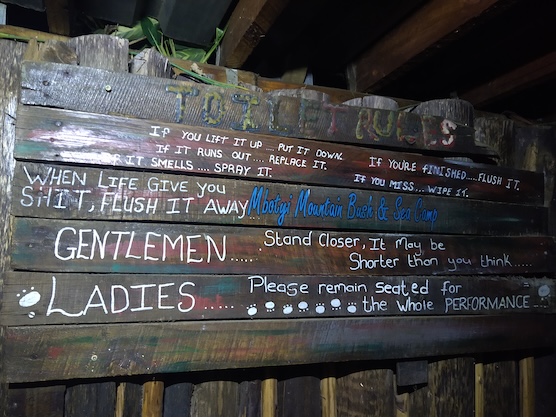 TOILET RULES
If you LIFT IT UP .... PUT IT DOWN.
IF IT RUNS OUT .... REPLACE IT.
IF IT SMELLS .... SPRAY IT.
If YOU'RE fINISHED.....FLUSH IT.
If YOU MISS... WIPE IT.
WHEN LIFE GIVE you
SHIT, FLUSH IT AWAY
Mbotyi Mountain Bush & Sea Camp
GENTLEMEN..... Stand Closer, It May be
Shorter than you think.....
LADIES..... Please remain Seated for
the whole PERFORMANCE...